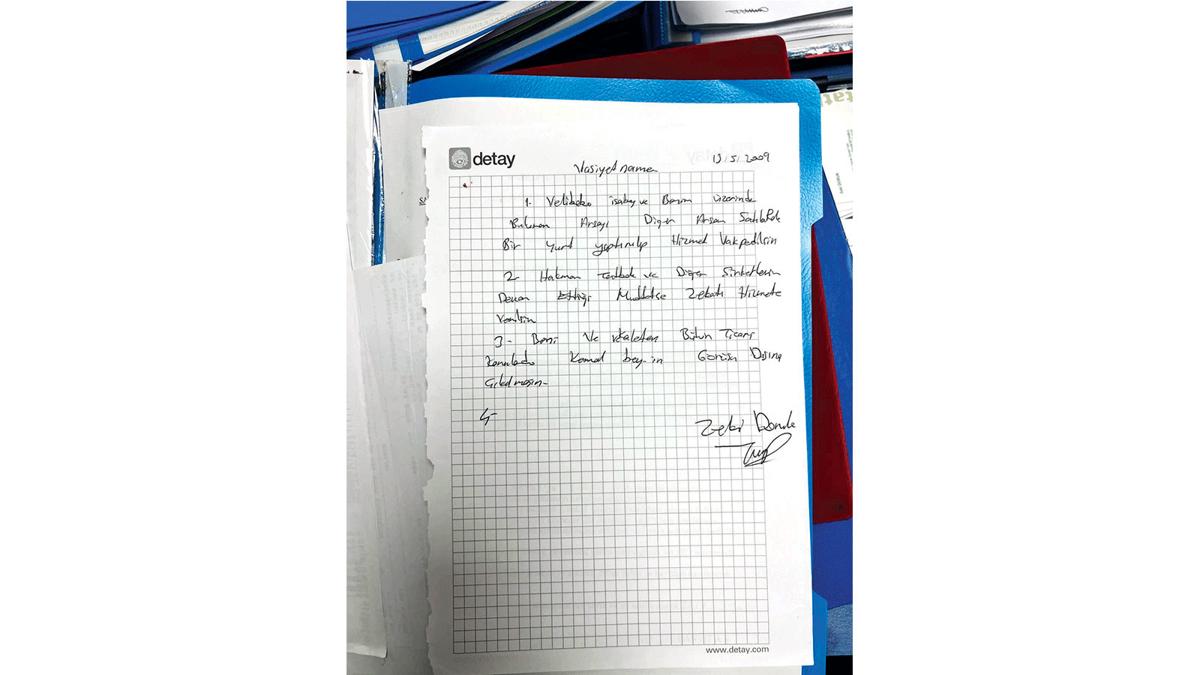 detay
13.5.2009
Vasiyetname
1. Velibaba isabey ve Benim üzerinde
Bulunan Arsayı Diğer Arsam Satılıp
Bir Yurt yaptırılıp Hizmet Vakfedilsin
2- Hakman ve Diğer Şirketlerin
Devam Ettiği Müddetçe Zekatı Hizmete
Verilsin
3- Beni Ve vekaleten Bütün Ticari
Konularda Kemal bey-in Görüşü Dışına
Çıkılmasın-
4-
Zeki
www.detay.com